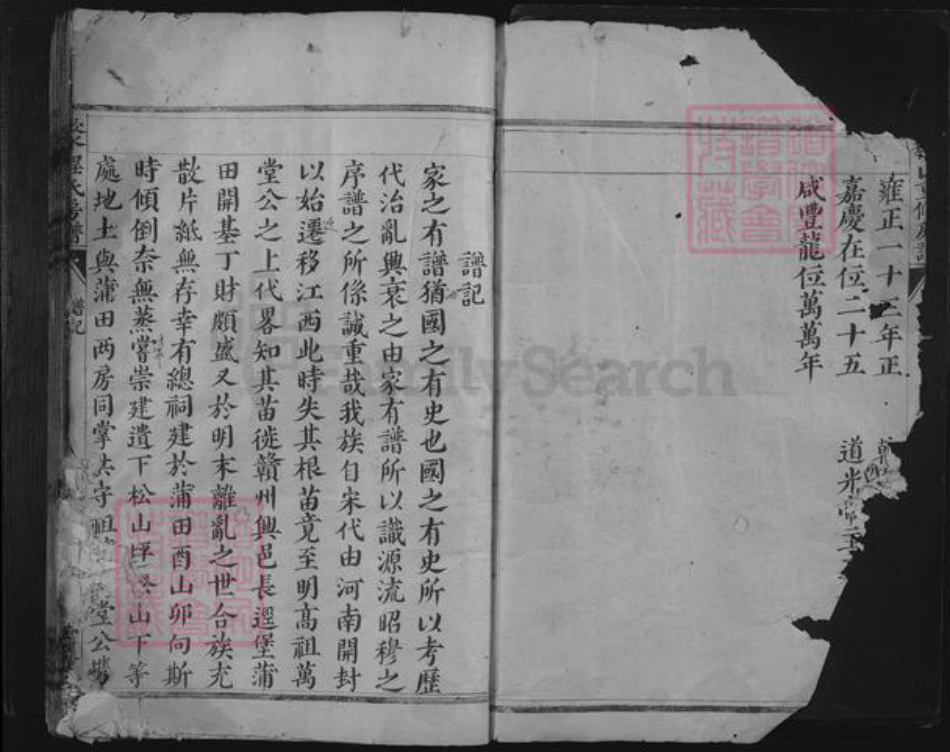 雍正一十二年正
嘉慶在位二十五
道光帝
咸豐龍位萬萬年
譜記
家之有譜猶國之有史也國之有史所以考歷
代治亂興衰之由家有譜所以識源流昭穆之
序譜之所係誠重哉我族自宋代由河南開封
以始遷移江西此時失其根苗竟至明高祖萬
堂公之上代畧知其苗徙贛州興邑長逕堡蒲
田開基丁財頗盛又於明末離亂之世合族充
散片紙無存幸有總祠建於蒲田酉山卯向斯
時傾倒奈無蒸嘗崇建遺下松山 山下等
處地土與蒲田两房同掌共守祖 堂公
氏房譜
譜記
FamilySearch